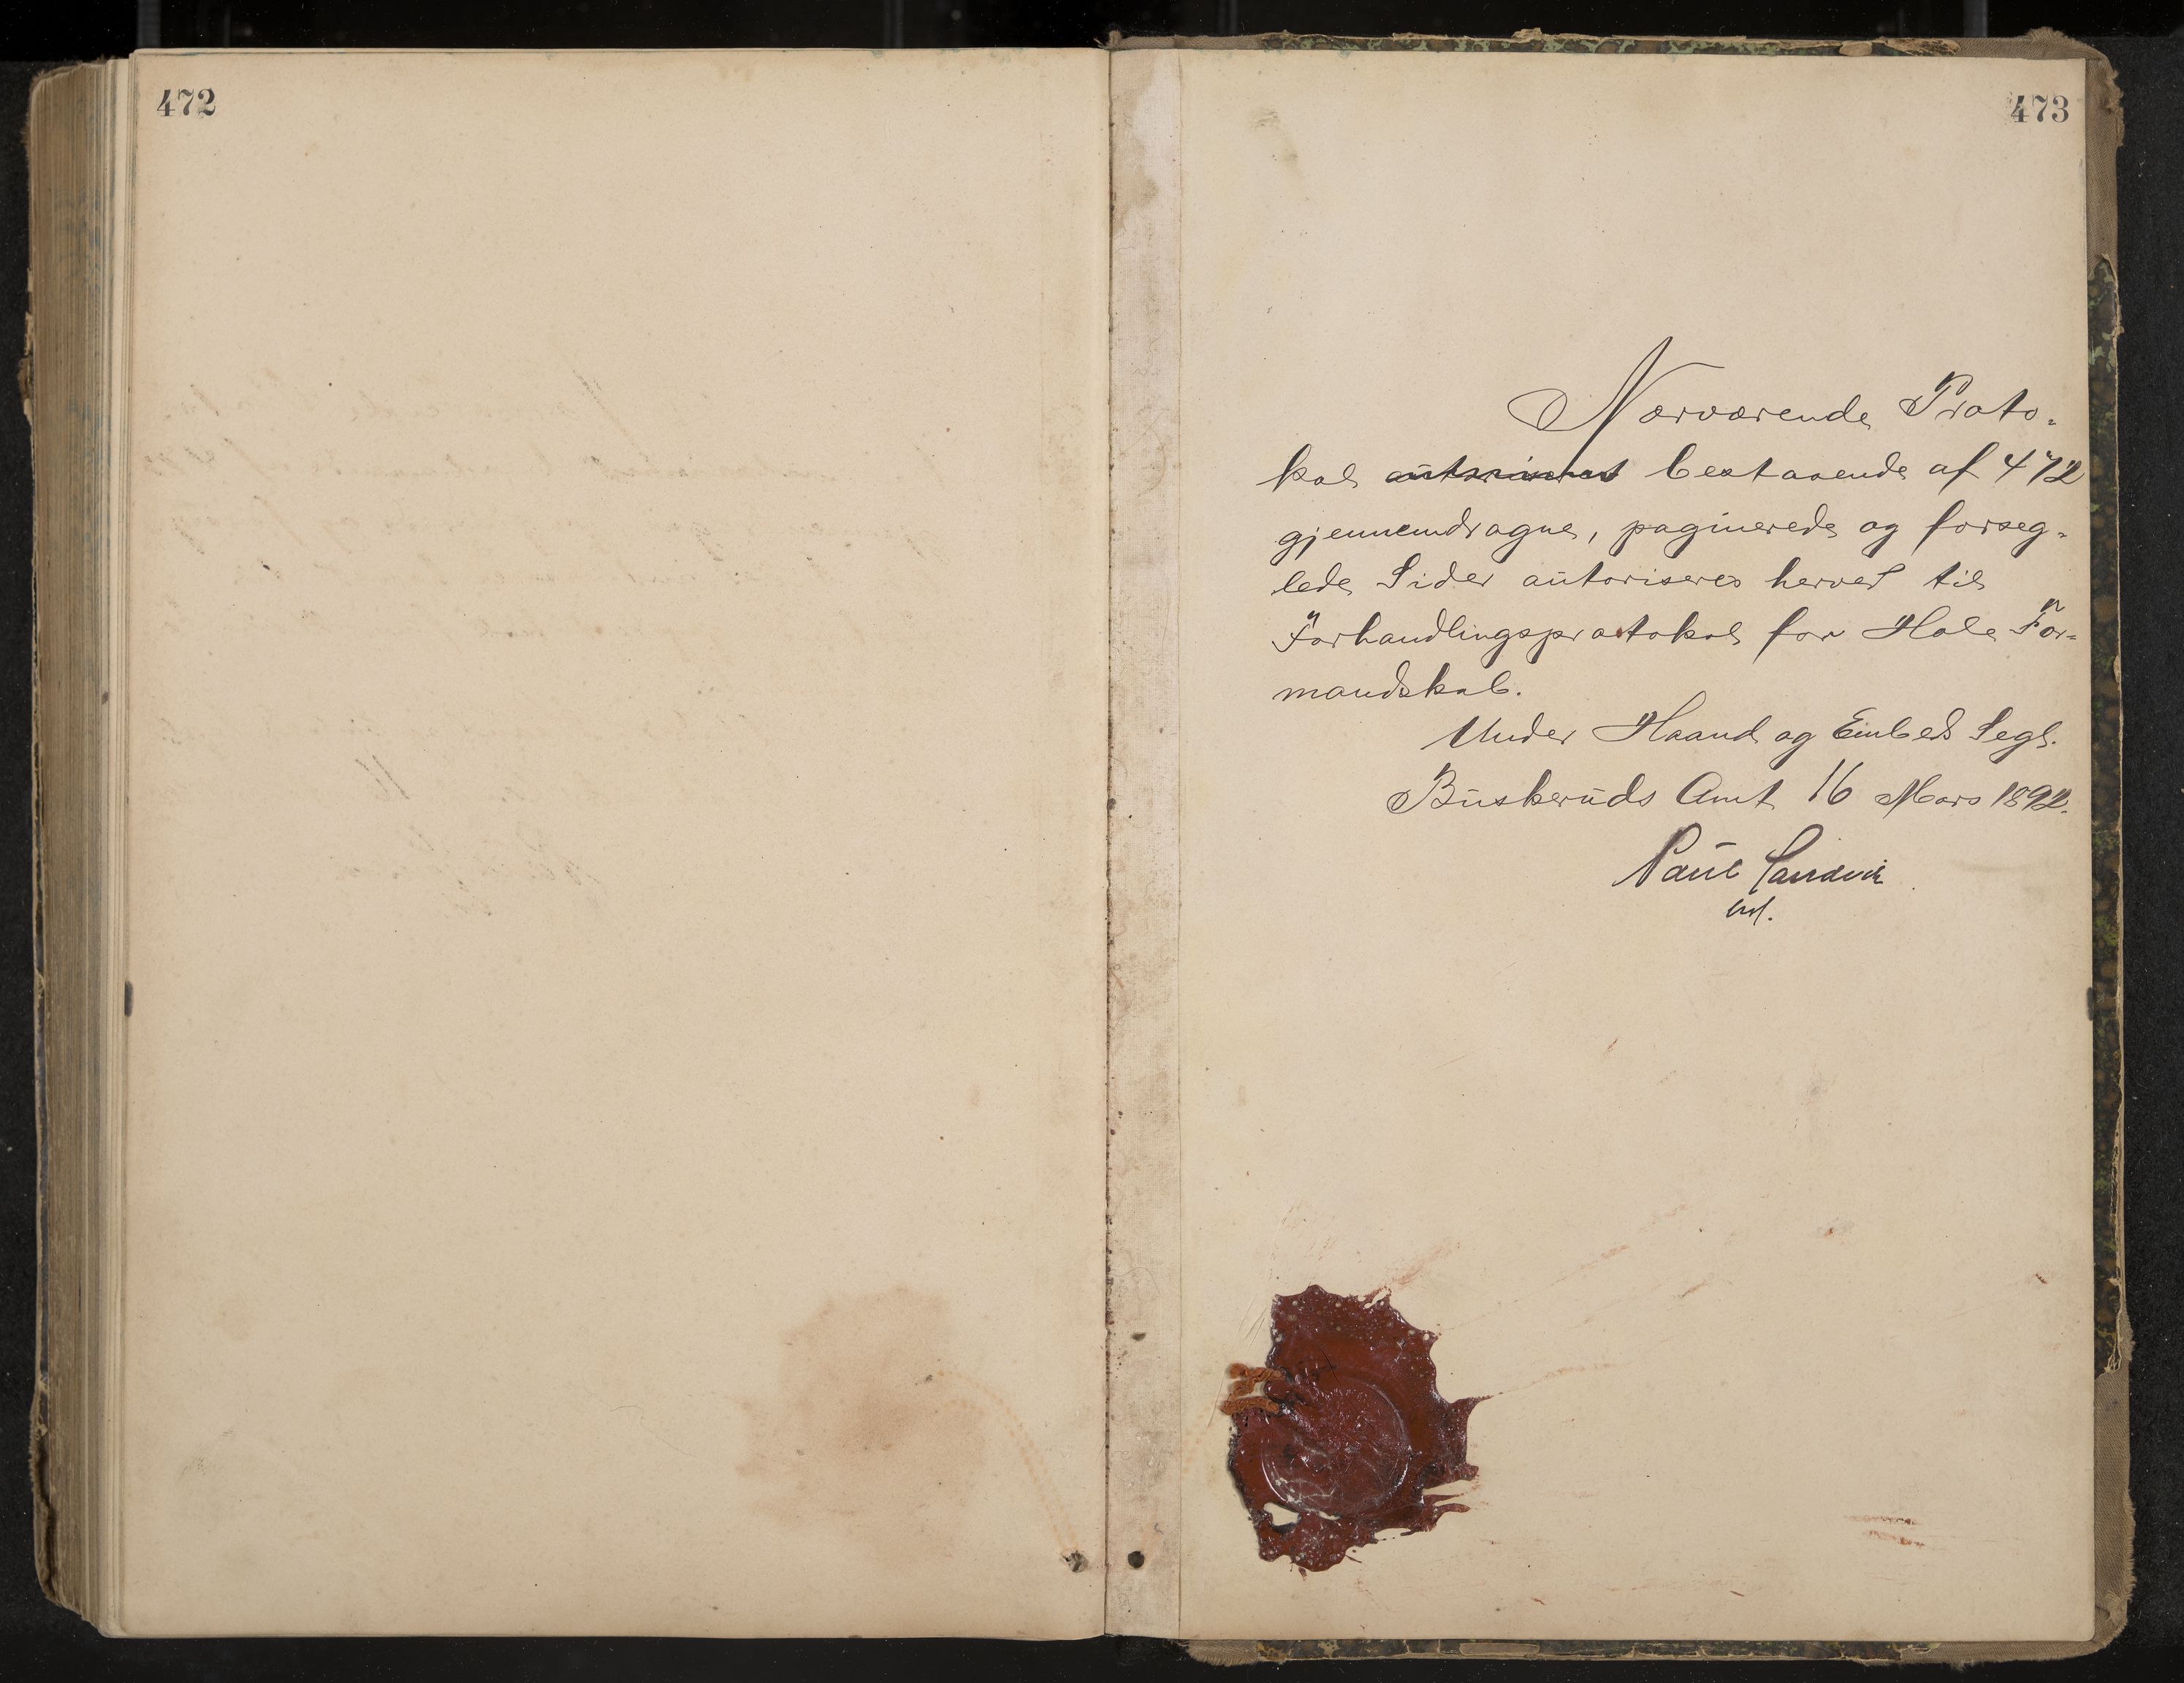 472
473
Nærværende Proto-
kol autoriseret bestaaende af 472
gjennemdragne, paginerede og forseg-
lede Sider autoriseres herved til
Forhandlingsprotokol for Hole For-
mandskab.
Under Haand og Embeds Segl.
Buskeruds Amt 16 Mars 1892.
Paul Sandvik